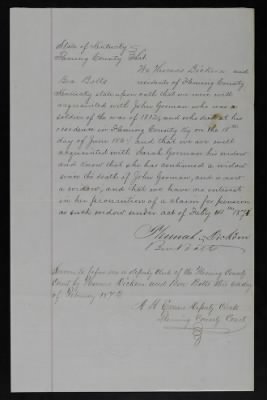 State of Kentucky
Fleming County Sct.
We Thomas Dickson and
Ben Botts residents of Fleming County
Kentucky state upon oath that we were well
acquainted with John Gorman who was a
soldier of the war of 1812, and who died at his
residence in Fleming County Ky on the 18th
day of June and that we are well
acquainted with Gorman his widow
and know that she has continued a widow
since the death of John Gorman, and is now
a widow, and that we have no interest
in her prosecution of a claim for pension
as such widow under act of
Thomas Dickson
Ben Botts
Sworn to before me a deputy clerk of the Fleming County
Court by Thomas Dickson and Ben Botts this day
of February
Deputy Clerk
Fleming County Court